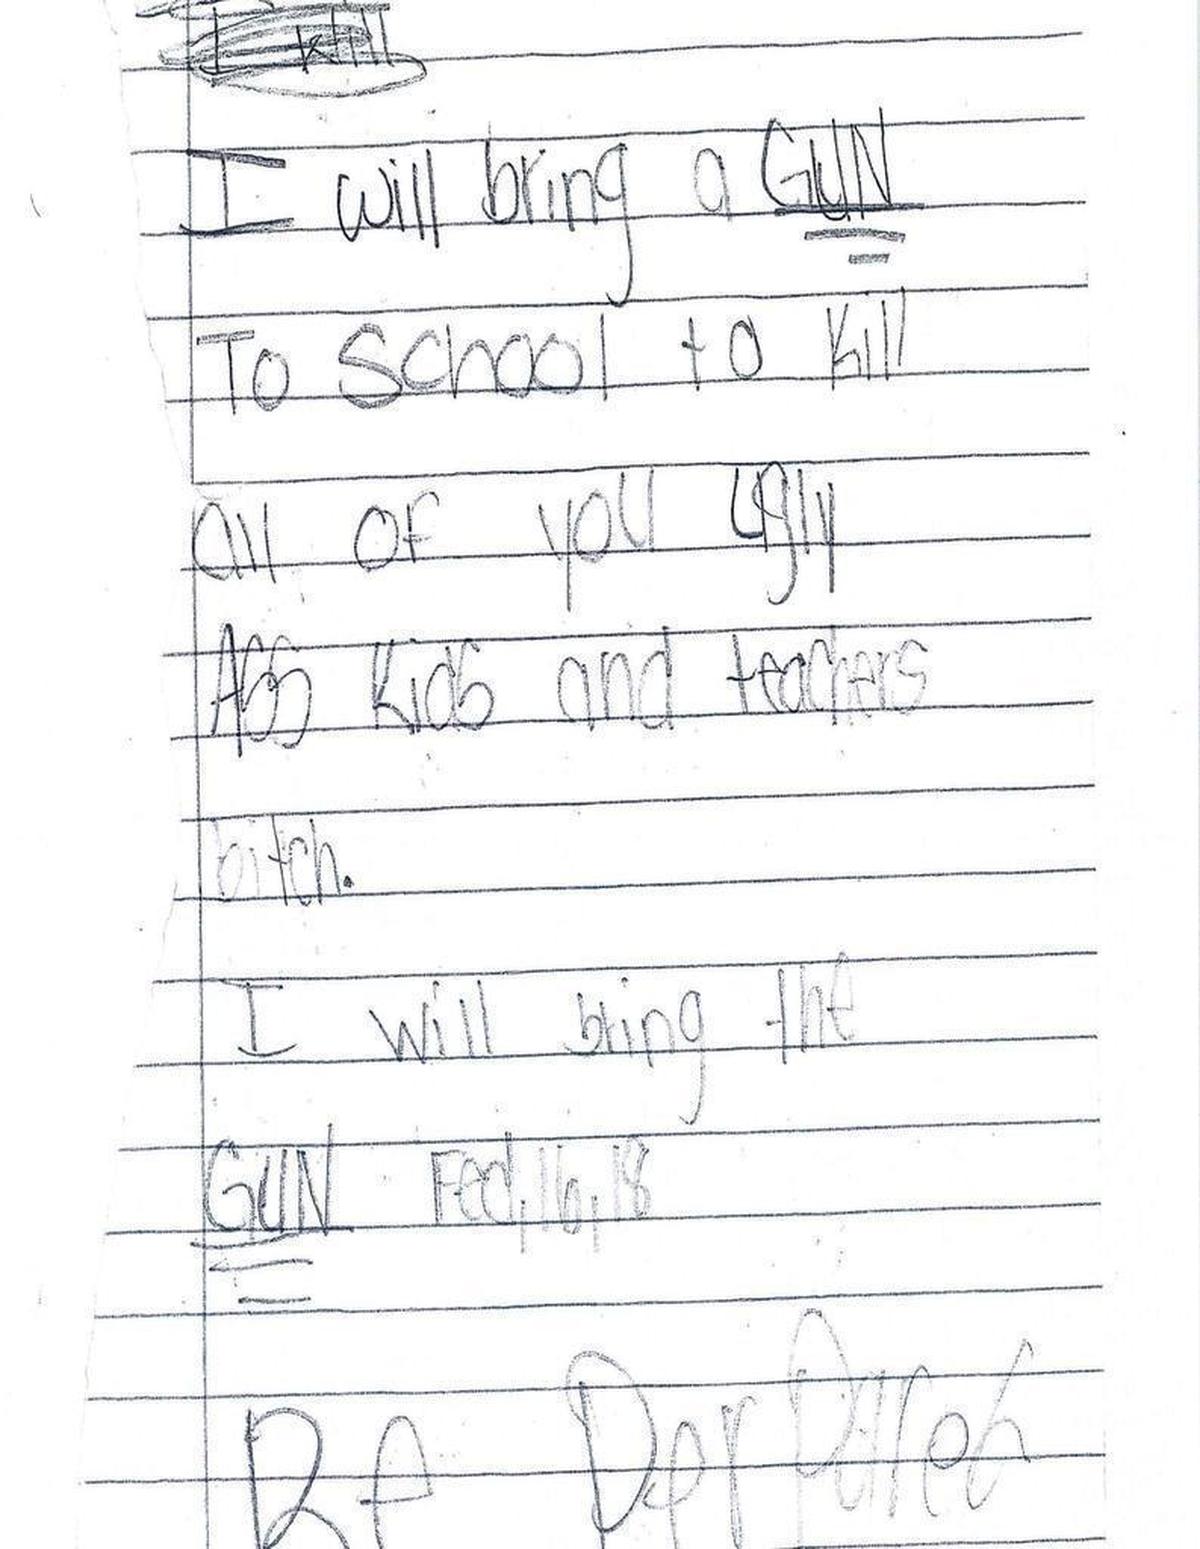 I kill
I will bring a GUN
To School to kill
all of you ugly
Ass kids and teachers
bitch.
I will bring the
GUN Fed,16,18
Be